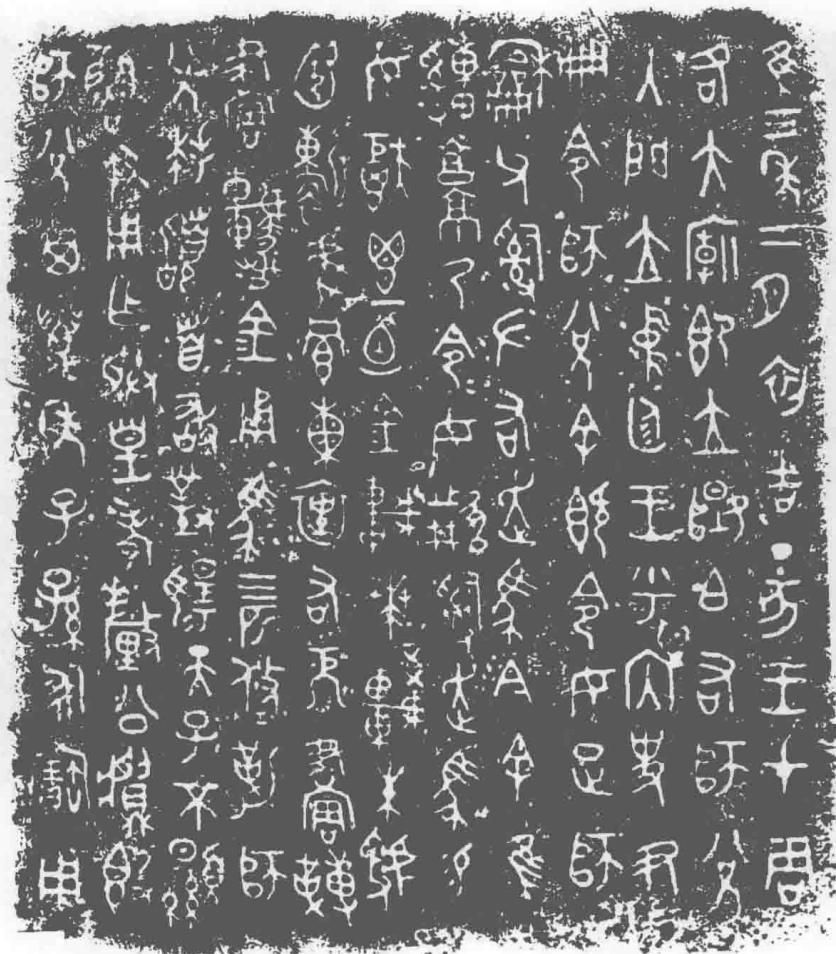 隹三年二月初吉丁亥王才周
各大廟即立𨸓白右師兌
入門立中廷王乎內史尹
冊令師兌余既令女疋師
龢父𤔲左右走馬今余隹
䌛𩫨乃令令女𤔲走馬易
女秬鬯一卣金車𠦪較朱虢
靳虎冟熏裏右厄畫
畫金甬馬四匹攸勒師
兌拜稽首敢對揚天子不顯
魯休用乍朕皇考釐公簋
師兌其萬年子子孫孫永寶用